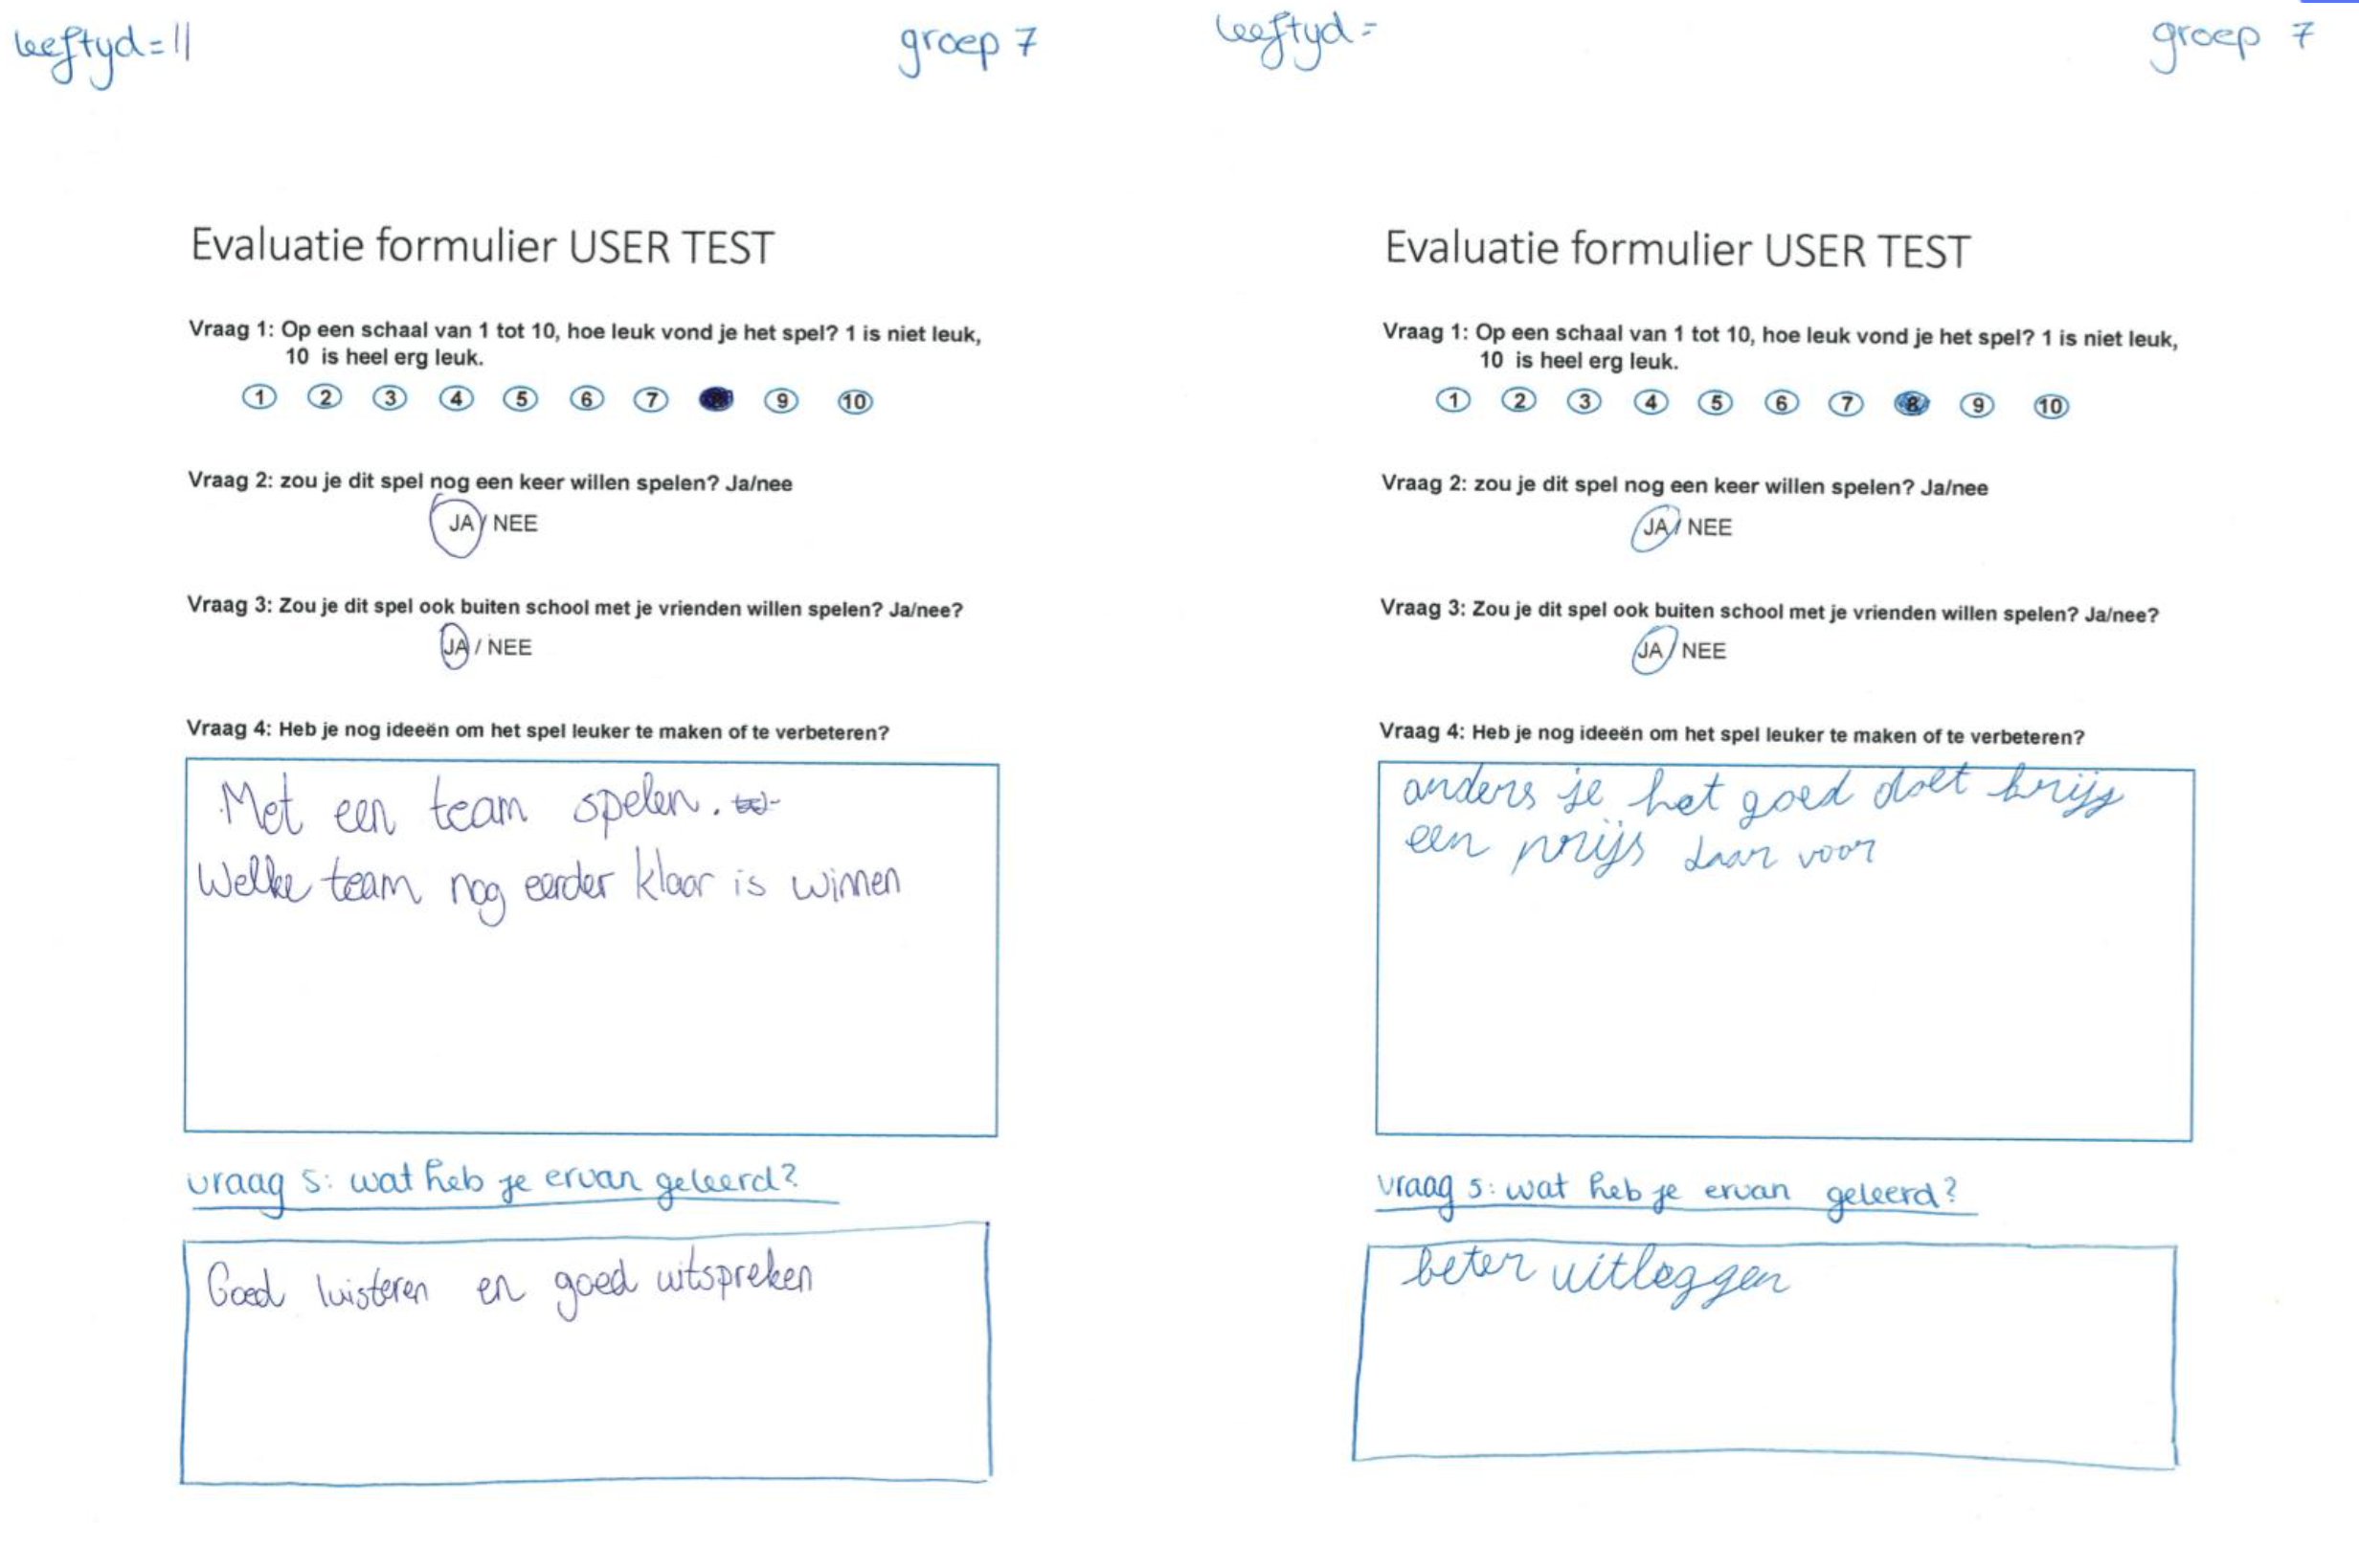 leeftyd = 11
groep 7
Evaluatie formulier USER TEST
Vraag 1: Op een schaal van 1 tot 10, hoe leuk vond je het spel? 1 is niet leuk,
10 is heel erg leuk.
1 2 3 4 5 6 7 9 10
Vraag 2: zou je dit spel nog een keer willen spelen? Ja/nee
JA / NEE
Vraag 3: Zou je dit spel ook buiten school met je vrienden willen spelen? Ja/nee?
JA / NEE
Vraag 4: Heb je nog ideeën om het spel leuker te maken of te verbeteren?
Met een team spelen.
Welke team nog eerder klaar is winnen
vraag 5: wat heb je ervan geleerd?
Goed luisteren en goed uitspreken
leeftyd =
groep 7
Evaluatie formulier USER TEST
Vraag 1: Op een schaal van 1 tot 10, hoe leuk vond je het spel? 1 is niet leuk,
10 is heel erg leuk.
1 2 3 4 5 6 7 8 9 10
Vraag 2: zou je dit spel nog een keer willen spelen? Ja/nee
JA / NEE
Vraag 3: Zou je dit spel ook buiten school met je vrienden willen spelen? Ja/nee?
JA / NEE
Vraag 4: Heb je nog ideeën om het spel leuker te maken of te verbeteren?
anders je het goed doet krijg
een prijs daar voor
vraag 5: wat heb je ervan geleerd?
beter uitleggen